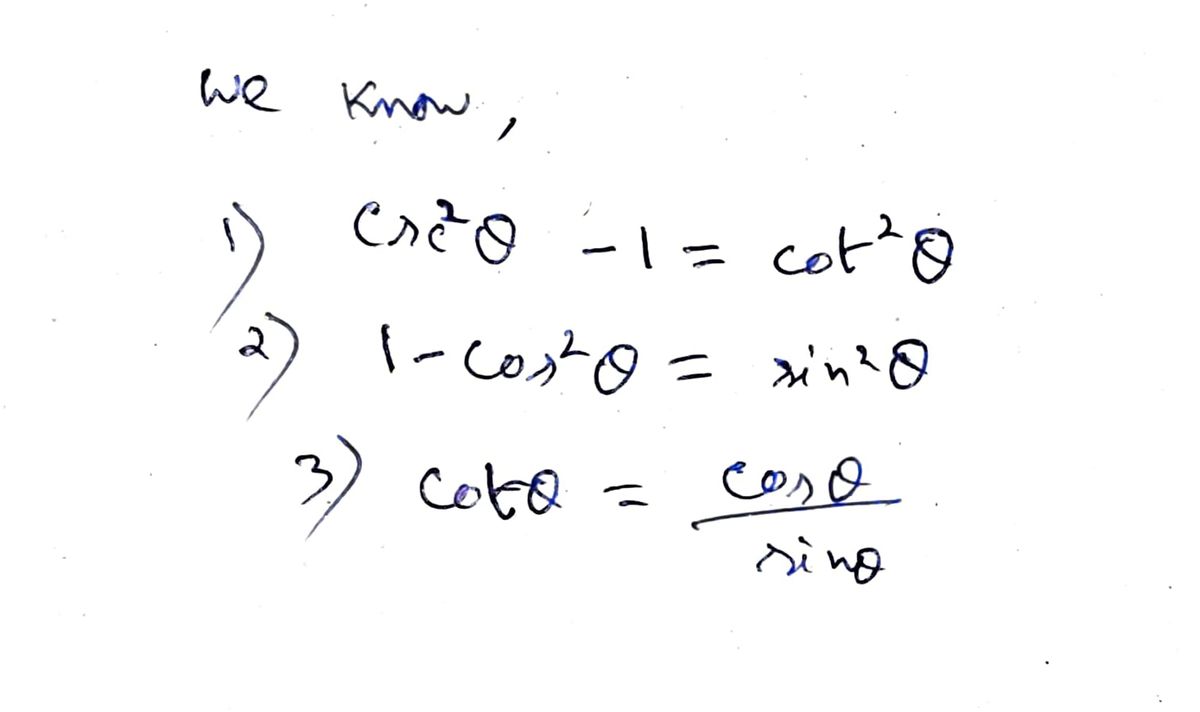 we know,
1) csc²θ - 1 = cot²θ
2) 1 - cos²θ = sin²θ
3) cotθ = cosθ / sinθ